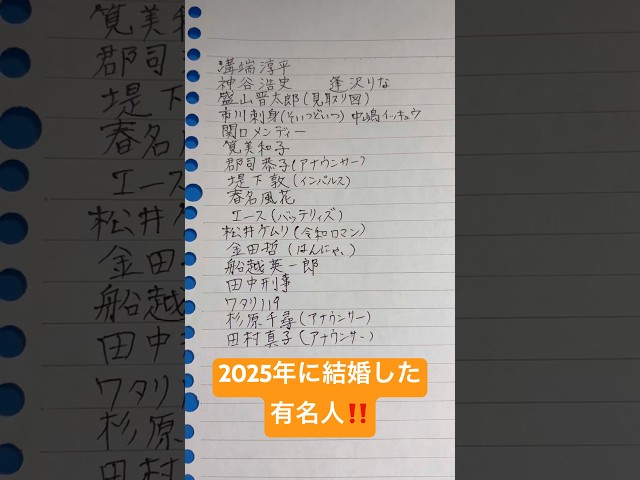 溝端淳平
神谷浩史　逢沢りな
盛山晋太郎(見取り図)
市川刺身(そいつどいつ) 中嶋イッキュウ
関口メンディー
筧美和子
郡司恭子(アナウンサー)
堤下敦(インパルス)
春名風花
エース(バッテリィズ)
松井ケムリ(令和ロマン)
金田哲(はんにゃ.)
船越英一郎
田中刑事
ワタリ119
杉原千尋(アナウンサー)
田村真子(アナウンサー)
2025年に結婚した
有名人‼️
筧美和
郡司
堤下
春名
エース
松井ケ
金田
船越
田中
ワタリ
杉原
田村